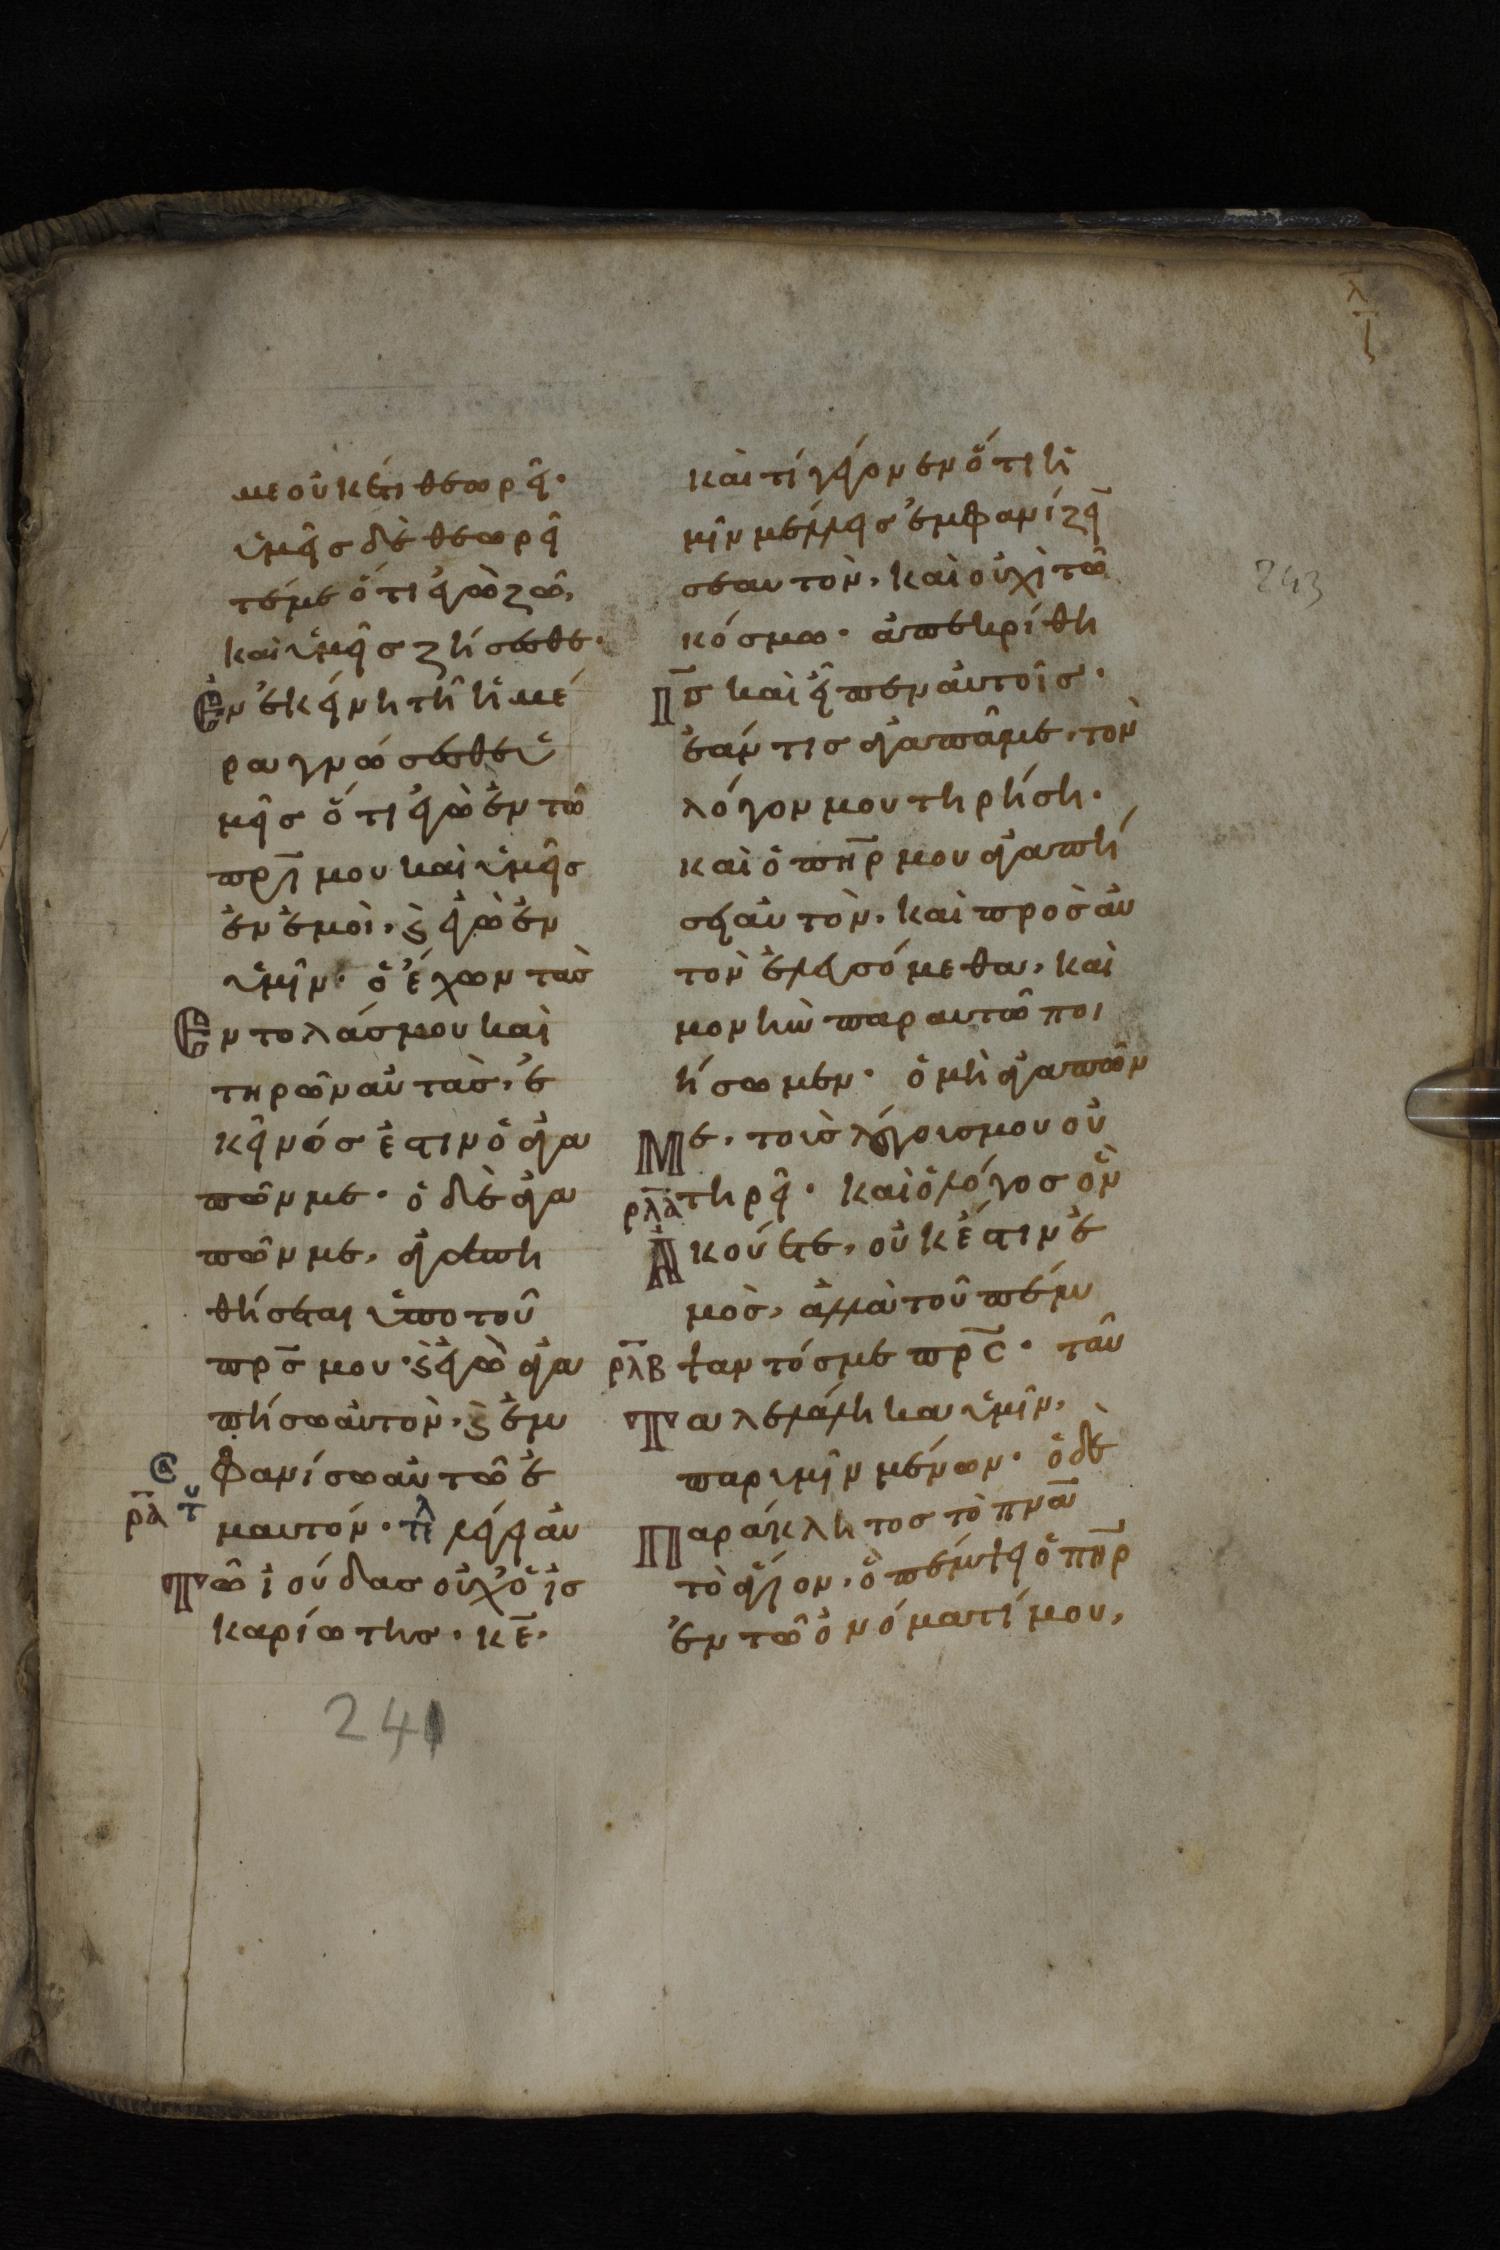 λ
ζ
με οὐκέτι θεωρεῖ·
ὑμεῖς δὲ θεωρεῖ
τέ με ὅτι ἐγὼ ζῶ,
καὶ ὑμεῖς ζήσεσθε·
Ἐν ἐκείνη τῆ ἡμέ
ρα γνώσεσθε ὑ
μεῖς ὅτι ἐγὼ ἐν τῶ
πρι̅ μου καὶ ὑμεῖς
ἐν ἐμοὶ, ϗ ἐγὼ ἐν
ὑμῖν· ὁ ἔχων τὰσ
Ἐντολάσ μου καὶ
τηρῶν αὐτὰσ, ἐ
κεῖνόσ ἐστιν ὁ ἀγα
πῶν με· ὁ δὲ ἀγα
πῶν με, ἀγαπη
θήσεται ὑπο τοῦ
πρσ̅ μου· ϗ ἐγὼ ἀγα
πήσω ἀυτὸν, ϗ ἐμ
φανίσω αὐτῶ ἐ
ρλ̅ μαυτόν· τλ λέγει ἀυ
Τῶ ἰούδασ οὐχ ὁ ἰσ
καρίωτησ· κε̅·
241
καὶ τί γέγονεν ὅτι ἡ
μῖν μέλλεισ ἐμφανίζει̅
σεαυτὸν, καὶ οὐχὶ τῶ
κόσμω· ἀπεκρίθη
Ισ̅ καὶ εἶπεν ἀυτοῖσ·
ἐάν τισ ἀγαπᾶ με, τὸν
λόγον μου τηρήση·
καὶ ὁ πηρ̅ μου ἀγαπή
σει ἀυτὸν, καὶ προσ ἀυ
τὸν ἐλευσόμεθα, καὶ
μονὴν παρ αυτῶ ποι
ήσωμεν· ὁ μὴ ἀγαπῶν
Με, τοὺσ λόγουσ μου οὐ
ρλα̅ τηρεῖ· καὶ ὁ λόγοσ ὃν
Ἀκούετε, οὐκ ἔστιν ἐ
μὸσ, ἀλλὰ τοῦ πέμ
ρλβ̅ ψαντόσ με πρσ̅· ταῦ
Τα λελάληκα ὑμῖν,
παρ υμῖν μένων· ὁ δὲ
Παράκλητοσ τὸ πνα̅
τὸ ἅγιον, ὃ πέμψει ὁ πηρ̅
ἐν τῶ ὀνόματί μου,
243